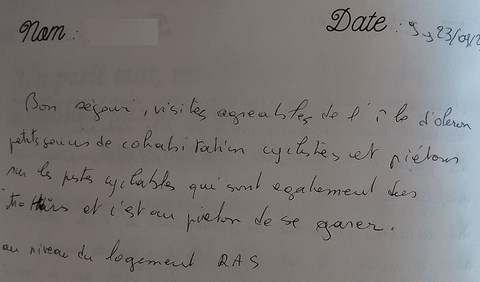 Nom :
Date : 9 → 23/09/2
Bon séjour, visites agréables de l'île d'oleron
petits soucis de cohabitation cyclistes et piétons
sur les pistes cyclables qui sont egalement des
trottoirs et c'est au piéton de se garer.
au niveau du logement RAS